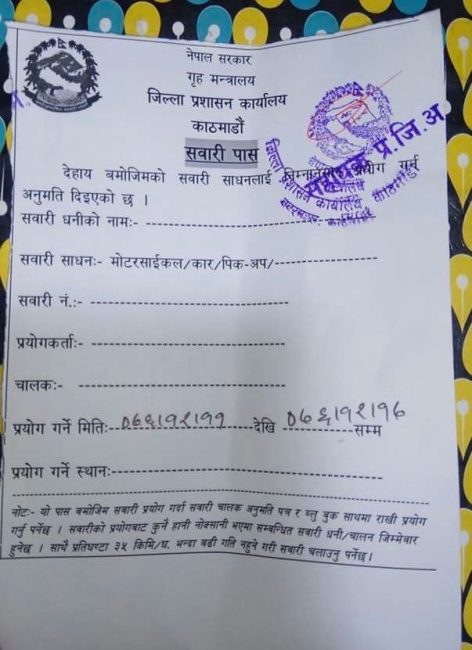 नेपाल सरकार
गृह मन्त्रालय
जिल्ला प्रशासन कार्यालय
काठमाडौं
सवारी पास
देहाय बमोजिमको सवारी साधनलाई निम्नानुसार प्रयोग गर्न
अनुमति दिइएको छ ।
सवारी धनीको नामः-
सवारी साधनः- मोटरसाईकल/कार/पिक-अप/
सवारी नं.:-
प्रयोगकर्ताः-
चालकः-
प्रयोग गर्ने मितिः- ०७६।१२।११ देखि ०७६।१२।१६ सम्म
प्रयोग गर्ने स्थानः-
नोटः- यो पास बमोजिम सवारी प्रयोग गर्दा सवारी चालक अनुमति पत्र र ब्लु बुक साथमा राखी प्रयोग
गर्नु पर्नेछ । सवारीको प्रयोगबाट कुनै हानी नोक्सानी भएमा सम्बन्धित सवारी धनी/चालन जिम्मेवार
हुनेछ । साथै प्रतिघण्टा ३५ किमि/घ. भन्दा बढी गति नहुने गरी सवारी चलाउनु पर्नेछ।
जिल्ला प्रशासन कार्यालय
सहायक प्र.जि.अ